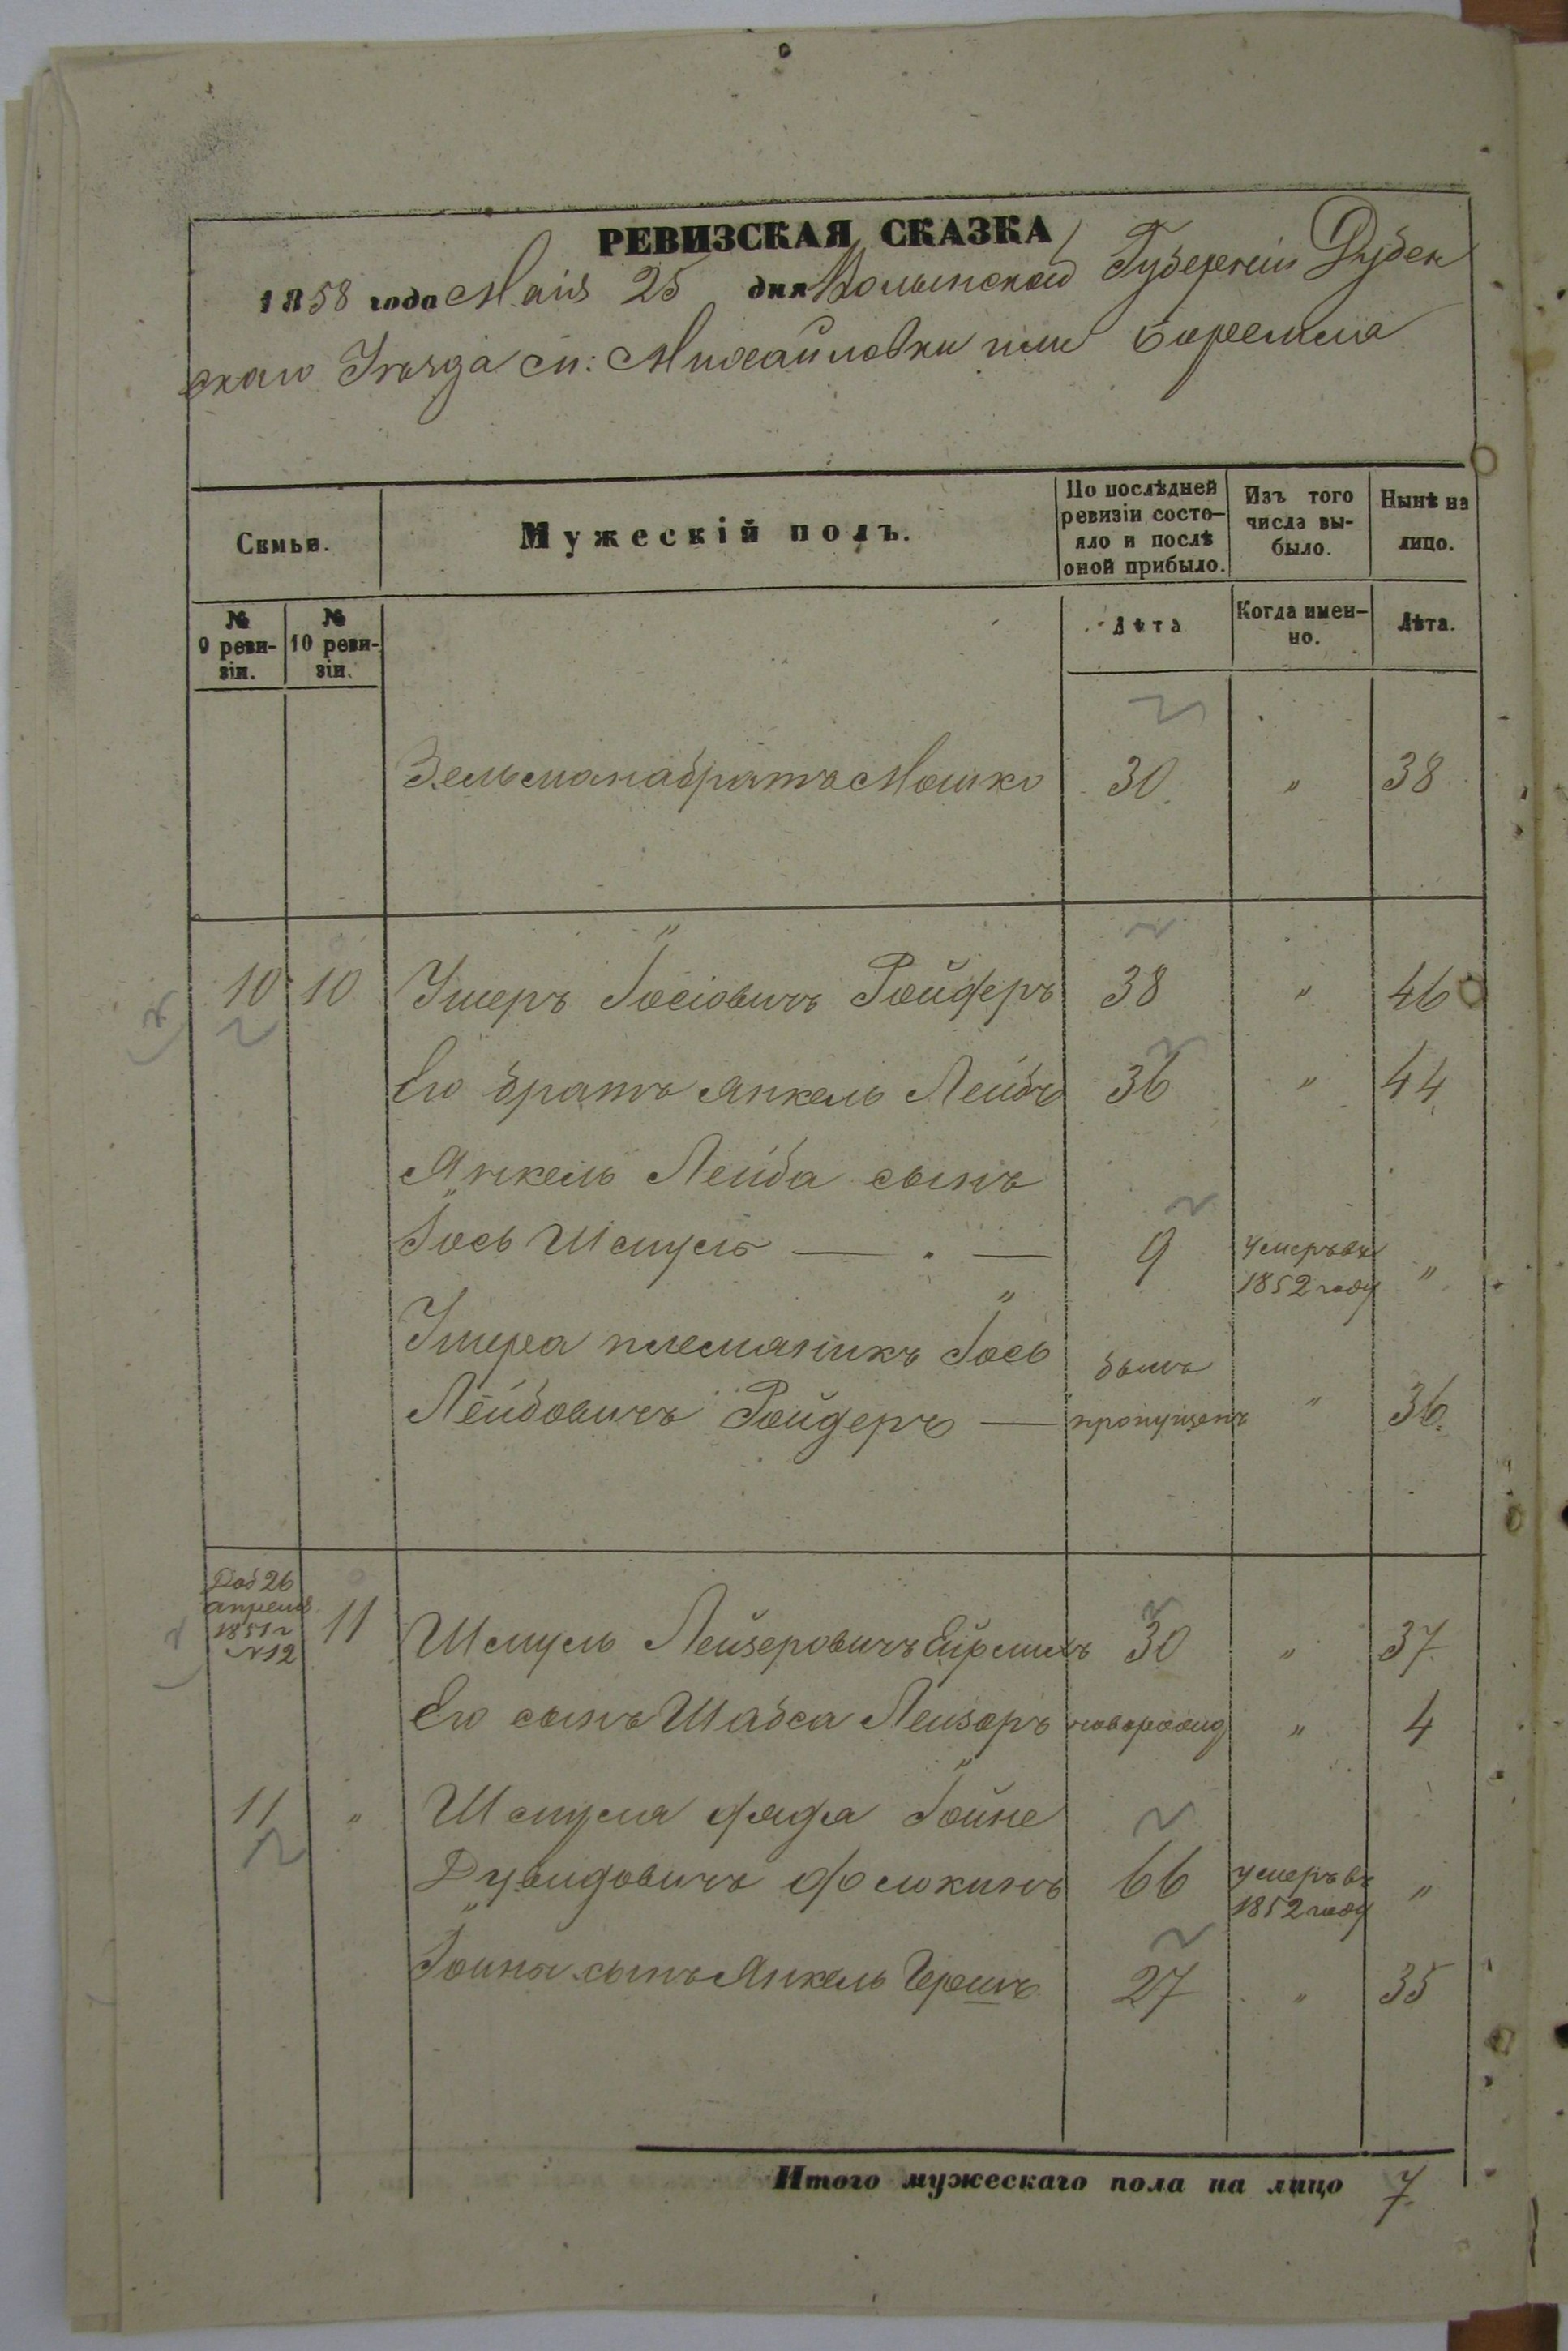 РЕВИЗСКАЯ СКАЗКА
1858 года Маія 25 дня Волынской Губерніи Дубен
скаго Уѣзда М: Михайловки или Боремля
Семьи.
Мужескій полъ.
По послѣдней ревизіи состо-
яло и послѣ
оной прибыло.
Изъ того
числа вы-
было.
Нынѣ на
лицо.
№
9 реви-
зіи.
№
10 реви-
зіи.
Лѣта
Когда имен-
но.
Лѣта.
Зельмана братъ Мошко 30 " 38
10 10 Ушеръ Іосіовичъ Ройдеръ 38 " 46
Его братъ Янкель Лейба 36 " 44
Янкель Лейба сынъ
Іось Шмуль — . — 9 умеръ въ 1852 году "
Ушера племянникъ Іось былъ
Лейбовичъ Ройдеръ — пропущенъ " 36.
Доб 26
апреля
1851 г
№12
11 Шмуль Лейзеровичъ 30 " 37
Его сынъ Шабса Лейзоръ новорожд " 4
11 " Шмуля дядя Іойне
Дувидовичъ 66 умеръ въ 1852 году "
Іойны сынъ Янкель Гершъ 27 " 35
Итого мужескаго пола на лицо 7.